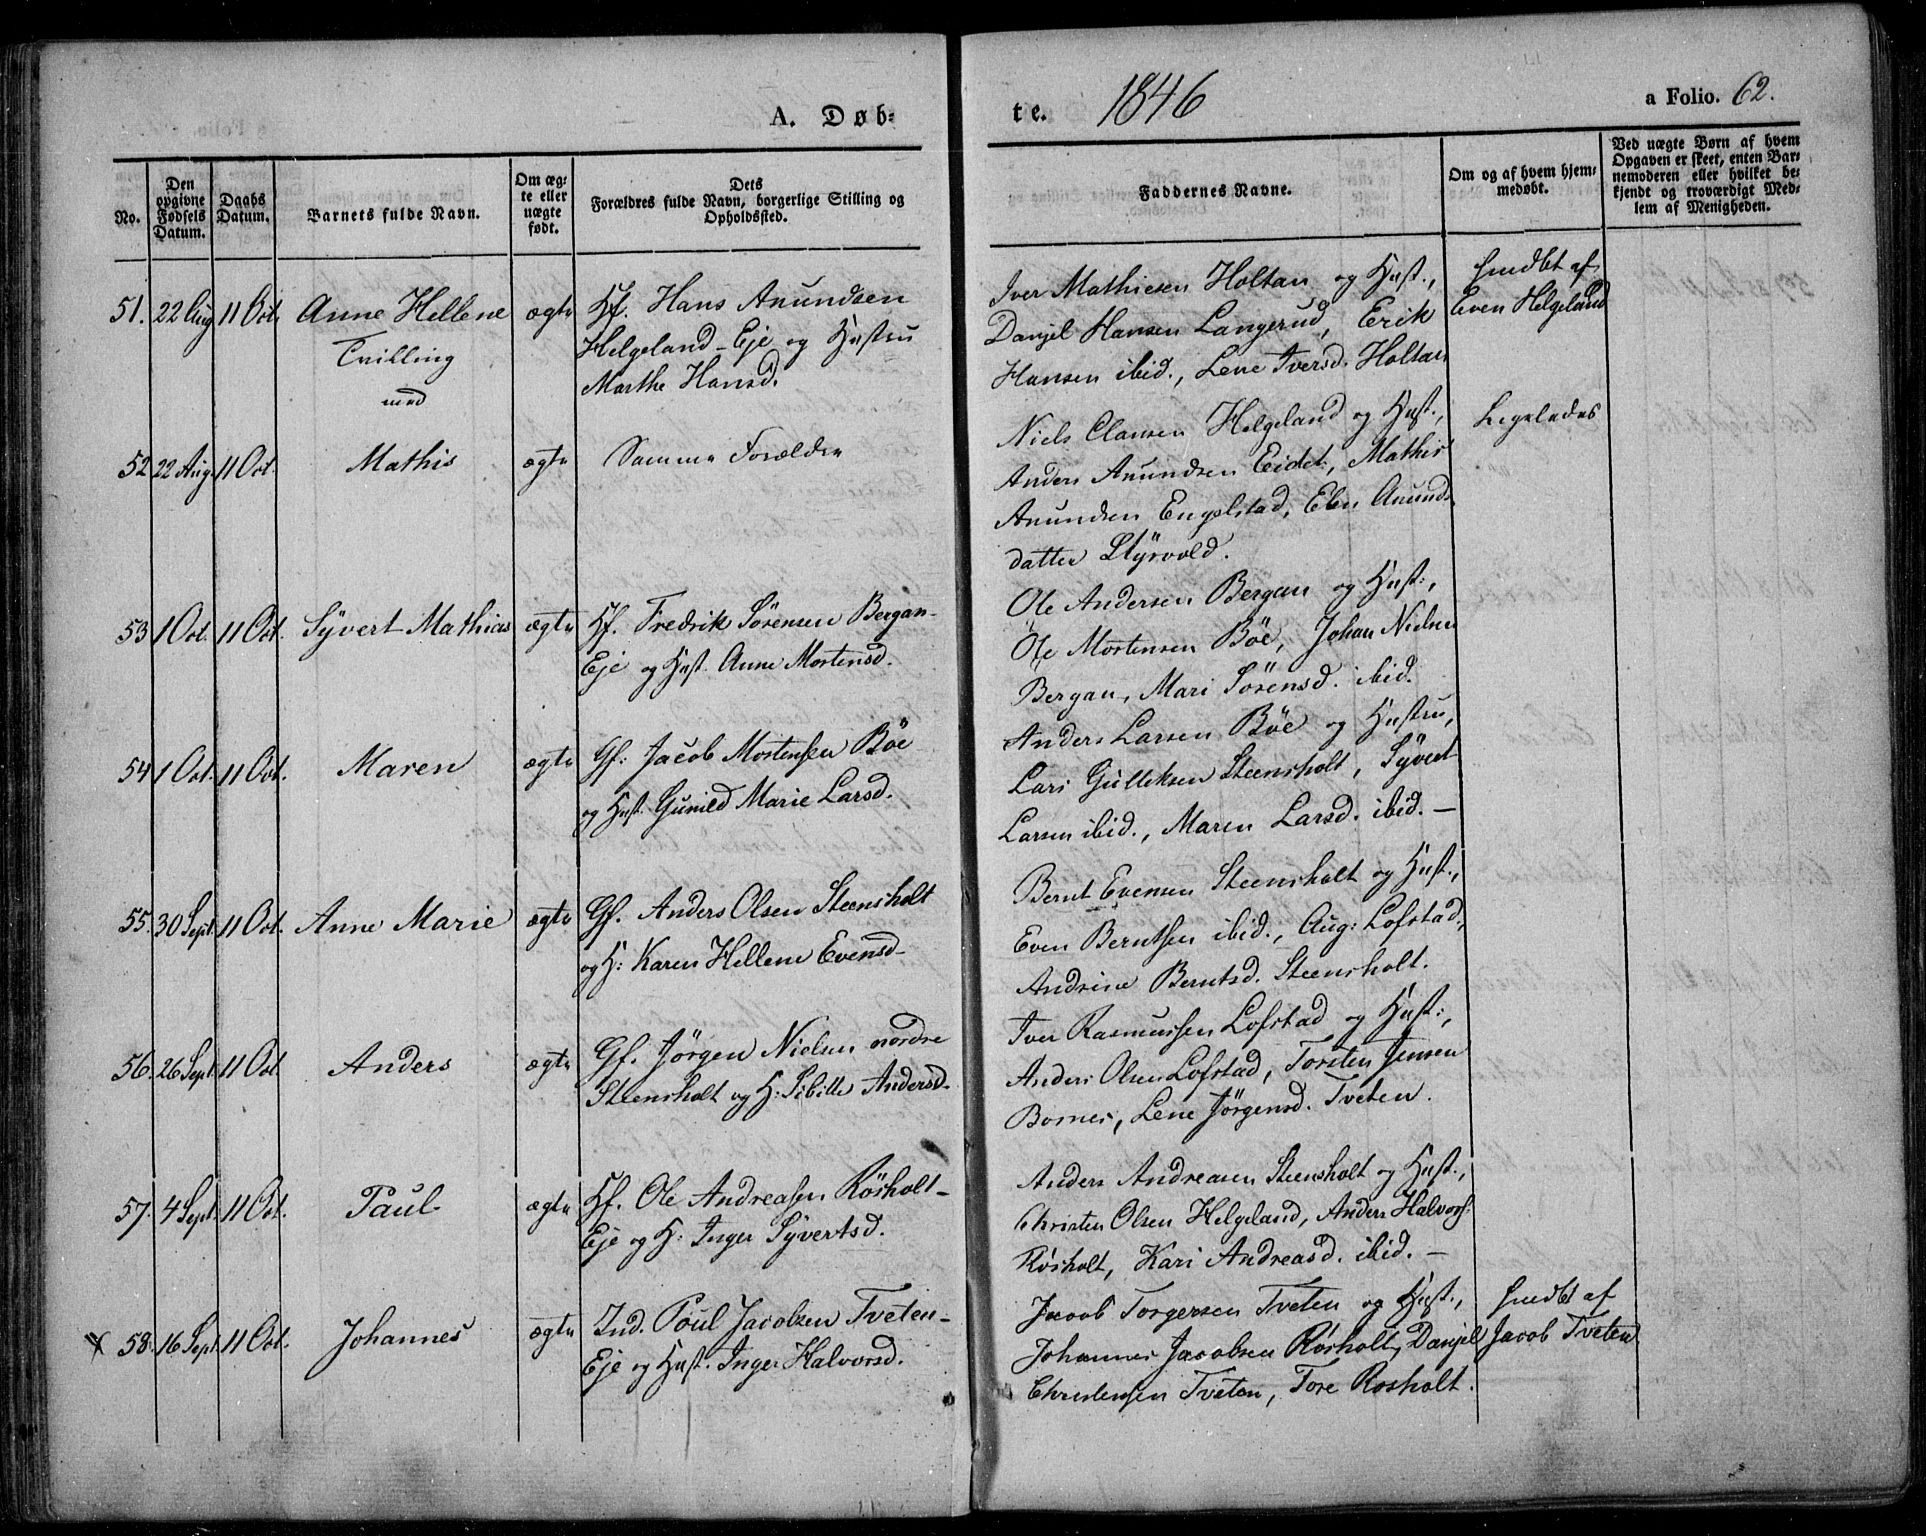 A. Døb-
te. 1846
a Folio. 62.
No.
Den opgivne Fødsels Datum.
Daabs Datum.
Barnets fulde Navn.
Om ægte eller uægte født.
Dets
Forældres fulde Navn, borgerlige Stilling og
Opholdssted.
Faddernes Navne.
Om og af hvem hjem-
medøbt.
Ved uægte Børn af hvem
Opgaven er skeet, enten Bar-
nemoderen eller hvilket be-
kjendt og troværdigt Med-
lem af Menigheden.
51. 22 Aug 11 Oct. Anne Hellene ægte Hf. Hans Anundsen
Tvilling Helgeland-Eje og Hustru
med Marthe Hansd.
Iver Mathiesen Holtan og Hust.,
Danjel Hansen Langerud, Erik
Hansen ibid., Lene Iversd. Holtan
hmdbt af
Even Helgeland
52 22 Aug. 11 Oct. Mathis ægte Samme Forældre
Niels Clausen Helgeland og Hust.,
Anders Anundsen Eidet, Mathis
Anundsen Engelstad, Elen Anunds
datter Styrvold.
Ligeledes
53 1 Oct. 11 Oct. Syvert Mathias ægte Hf. Fredrik Sørensen Bergan-
Eje og Hust. Anne Mortensd.
Ole Andersen Bergan og Hust.,
Ole Mortensen Böe, Johan Nielsen
Bergan, Mari Sörensd. ibid.
54 1 Oct. 11 Oct. Maren ægte Gf: Jacob Mortensen Böe
og Hust. Gunild Marie Larsd.
Anders Larsen Böe og Hustru,
Lars Gulleksen Steensholt, Syvert
Larsen ibid., Maren Larsd. ibid. —
55. 30 Sept. 11 Oct. Anne Marie ægte Gf. Anders Olsen Steensholt
og H: Karen Hellene Evensd-
Bernt Evensen Steensholt og Hust.,
Even Berntsen ibid., Aug: Lofstad,
Andrine Berntsd. Steensholt.
56. 26 Sept. 11 Oct. Anders ægte Gf. Jörgen Nielsen nordre
Steensholt og H: Sibille Andersd-
Iver Rasmussen Lofstad og Hust:,
Anders Olsen Lofstad, Torsten Jensen
Bornes, Lene Jörgensd. Tveten.
57. 4 Sept. 11 Oct. Paul ægte Hf. Ole Andreasen Rösholt-
Eje og H: Inger Syvertsd.
Anders Andreasen Steensholt og Hust.,
Christen Olsen Helgeland, Anders Halvors:
Rösholt, Kari Andreasd. ibid. —
58. 16 Sept 11 Oct. Johannes ægte Ind. Poul Jacobsen Tveten-
Eje og Hust. Inger Halvorsd.
Jacob Torgersen Tveten og Hust.,
Johannes Jacobsen Rösholt, Danjel
Christensen Tveten, Tore Rosholt.
hmdbt af
Jacob Tveten